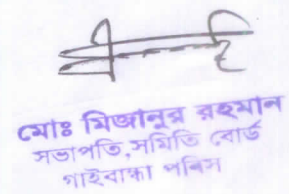 মোঃ মিজানুর রহমান
সভাপতি,সমিতি বোর্ড
গাইবান্ধা পবিস